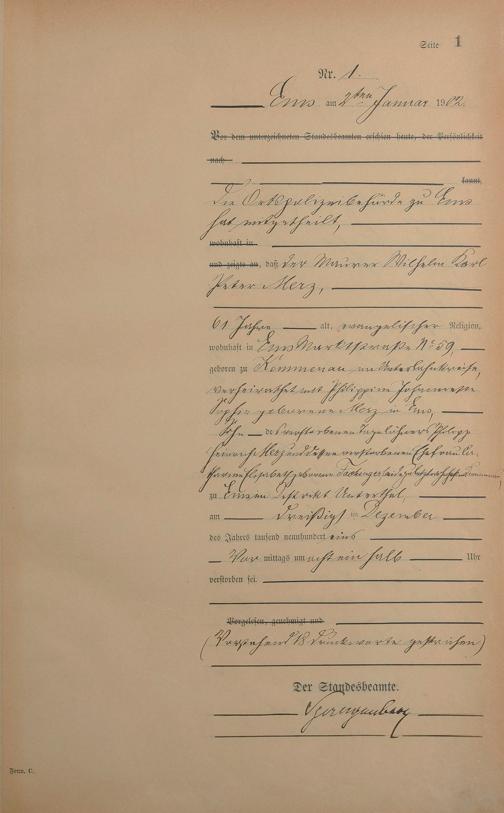 Seite 1
Nr. 1.
Ems am 2ten Januar 1902.
Vor dem unterzeichneten Standesbeamten erschien heute, der Persönlichkeit
nach
kannt,
die Ortspolizeibehörde zu Ems
hat mitgetheilt,
wohnhaft in
und zeigte an, daß der Maurer Wilhelm Karl
Peter Merz,
61 Jahre alt, evangelischer Religion,
wohnhaft in Ems Marktstraße No 59,
geboren zu Kemmenau im Unterlahnkreise,
verheirathet mit Philippine
Sophie geborene Merz in Ems,
Sohn des verstorbenen Tagelöhners Philipp
Heinrich Merz und dessen verstorbenen Ehefrau
Elisabeth geborene
zu Ems
am dreißigsten Dezember
des Jahrs tausend neunhundert eins
Vor mittags um acht ein halb Uhr
verstorben sei.
Vorgelesen, genehmigt und
(Vorstehend 18 Druckworte gestrichen)
Der Standesbeamte.
Form. C.